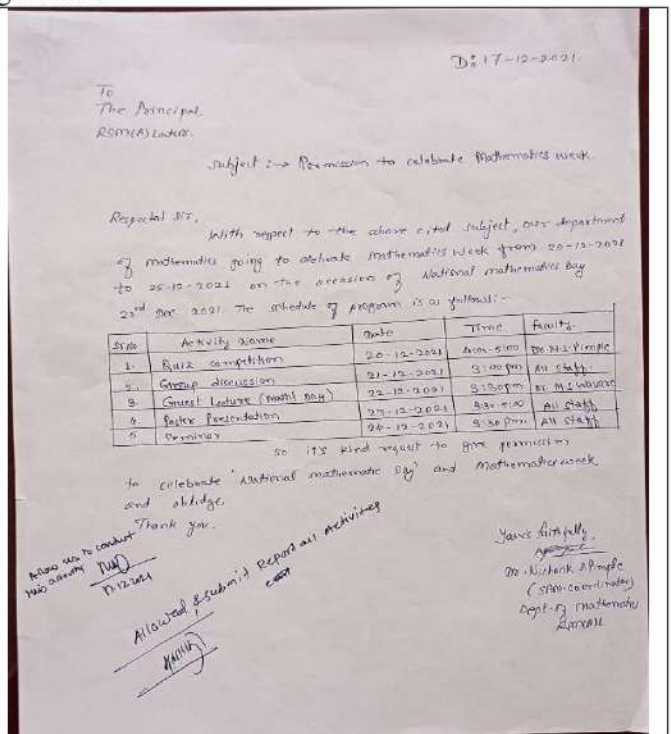 D: 17-12-2021
To
The Principal
RSM(A) Latur.
Subject :→ Permission to celebrate Mathematics week.
Respected Sir,
With respect to the above cited subject, our department
of mathematics going to celebrate mathematics week from 20-12-2021
to 25-12-2021 on the occasion of National mathematics Day
22nd Dec 2021. The schedule of program is as follows:-
Sr.No Activity Name Date Time Faculty
1. Quiz competition 20-12-2021 - 5:00 Dr. N.S. Pimple
2. Group discussion 21-12-2021 3:00 pm All staff
3. Guest Lecture 22-12-2021 3:30pm Dr. M.S.
4. Poster Presentation 23-12-2021 All staff
5. Seminar 24-12-2021 3:30 pm All staff
so it's kind request to give permission
to celebrate 'National mathematic Day' and Mathematics week
and oblidge.
Thank you.
Allow us to conduct
this activity
17.12.2021
Allowed & submit Report all Activities
Yours faithfully
Dr. Nishank S. Pimple
coordinator)
Dept. of mathematics